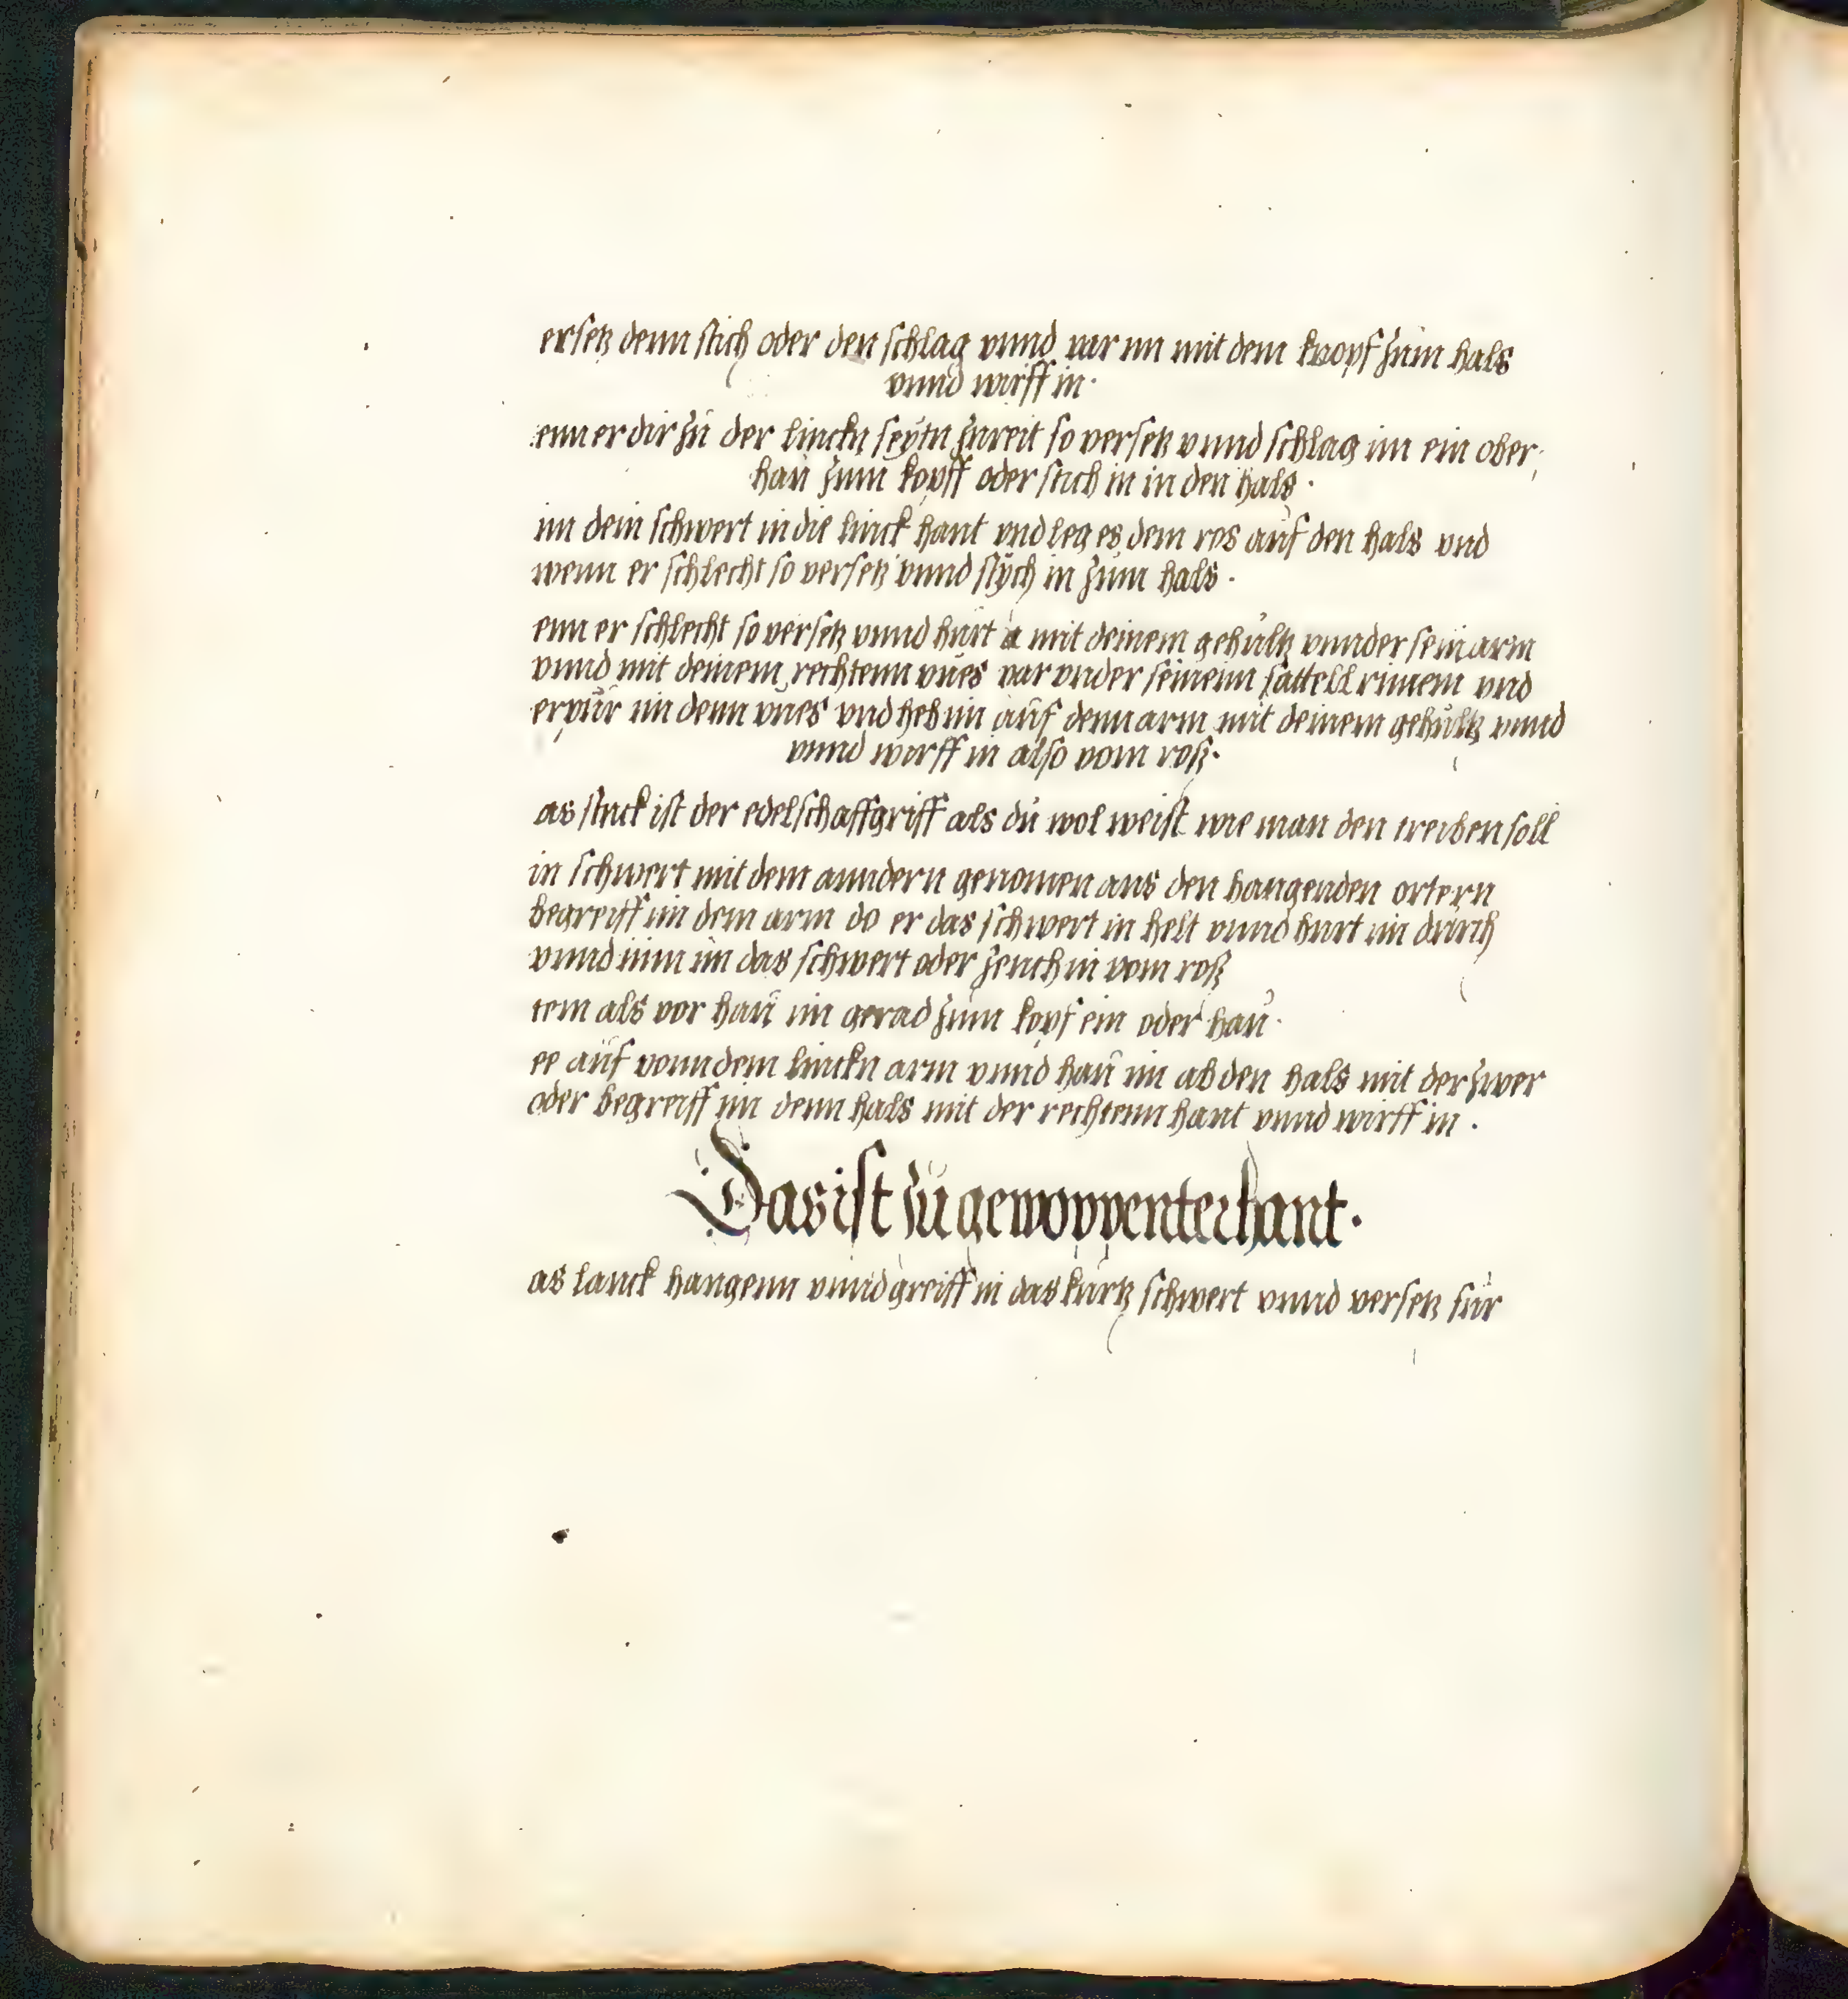 ersetz denn stich oder den schlag vnnd var im mit dem knopf zum hals
vnnd wirff in ·
enn er dir zu der linckn seytn zureit so versetz vnnd schlag im ein ober
hau zum kopff oder stich in in den hals ·
im dein schwert in die linck hant vnd leg es dem ros auf den hals vnd
wenn er schlecht so versetz vnnd stych in zum hals ·
enn er schlecht so versetz vnnd hurt a mit deinem gehultz vnnder sein arm
vnnd mit deinem rechtenn vues var vnder seinem sattell rimem vnd
erpur im denn vues vnd heb im auf denn arm mit deinem gehultz vnnd
vnnd worff in also vom roß ·
as stuck ist der edel schaffgriff als du wol weist wie man den treiben soll
in schwert mit dem anndern genomen aus den hangenden ortern
begreiff im dem arm do er das schwert in helt vnnd hurt im durch
vnnd nim im das schwert oder zeuch in vom roß
tem als vor hau im gerad zum kopf ein oder hau ·
ee auf vonn dem linckn arm vnnd hau im ab den hals mit der zwer
oder begreiff im denn hals mit der rechtenn hant vnnd wirff in ·
Das ist zu gewoppenter hant ·
as lanck hangenn vnnd greiff in das kurtz schwert vnnd versetz fur